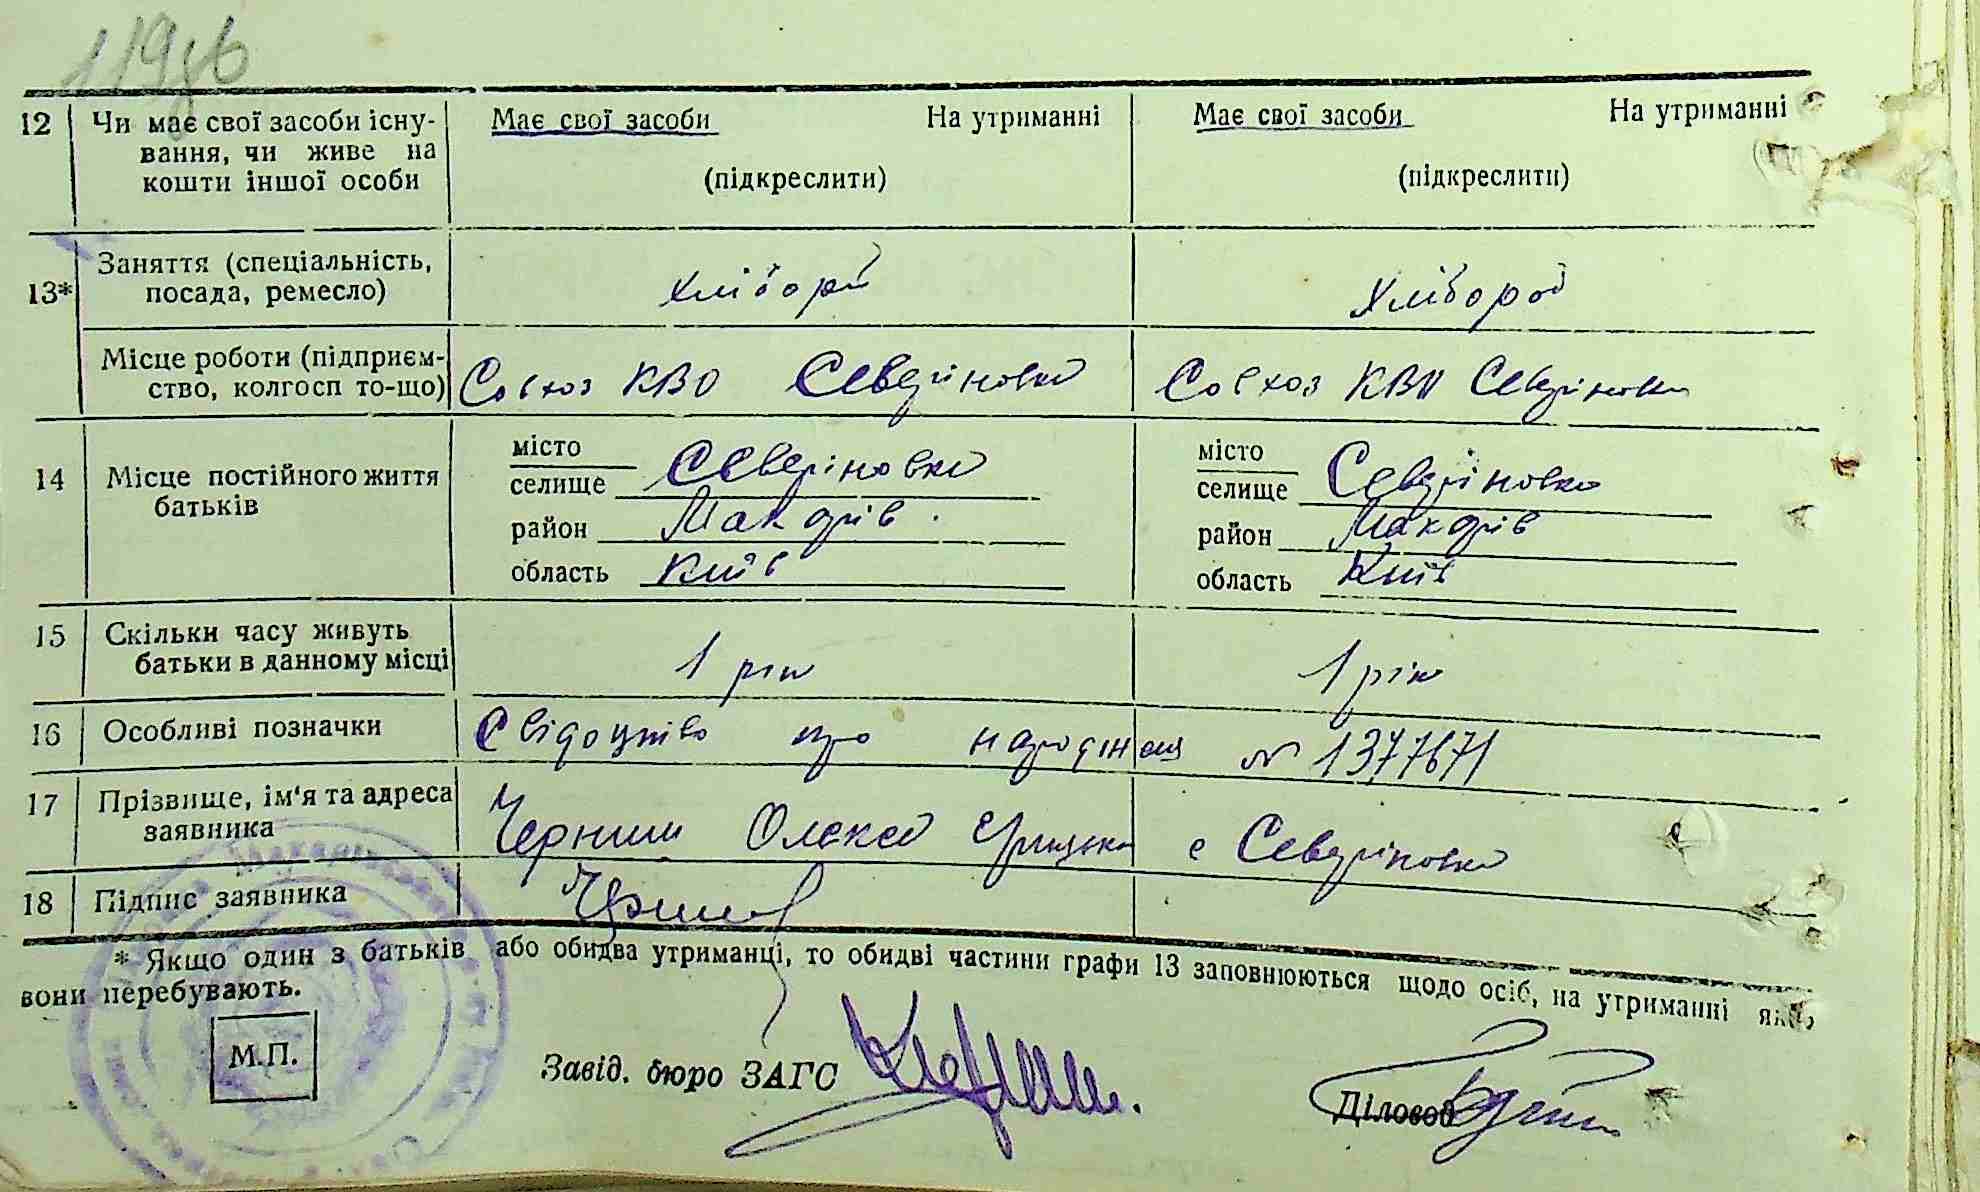 119зв
12 Чи має свої засоби існу- Має свої засоби На утриманні Має свої засоби На утриманні
вання, чи живе на
кошти іншої особи (підкреслити) (підкреслити)
13* Заняття (спеціальність,
посада, ремесло) хлібороб Хлібороб
Місце роботи (підприєм-
ство, колгосп то-що) Совхоз КВО Северіновка Совхоз КВО Северіновка
14 Місце постійного життя
батьків
місто місто
селище Северіновка селище Северіновка
район Макарів район Макарів
область Київ область Київ
15 Скільки часу живуть
батьки в данному місці 1 рік 1 рік
16 Особливі позначки Свідоцтво про народіння № 1377671
17 Прізвище, ім'я та адреса
заявника Черниш Олексій с Северіновка
18 Підпис заявника
* Якщо один з батьків або обидва утриманці, то обидві частини графи 13 заповнюються щодо осіб, на утриманні яких
вони перебувають.
М.П.
Завід. бюро ЗАГС Діловод